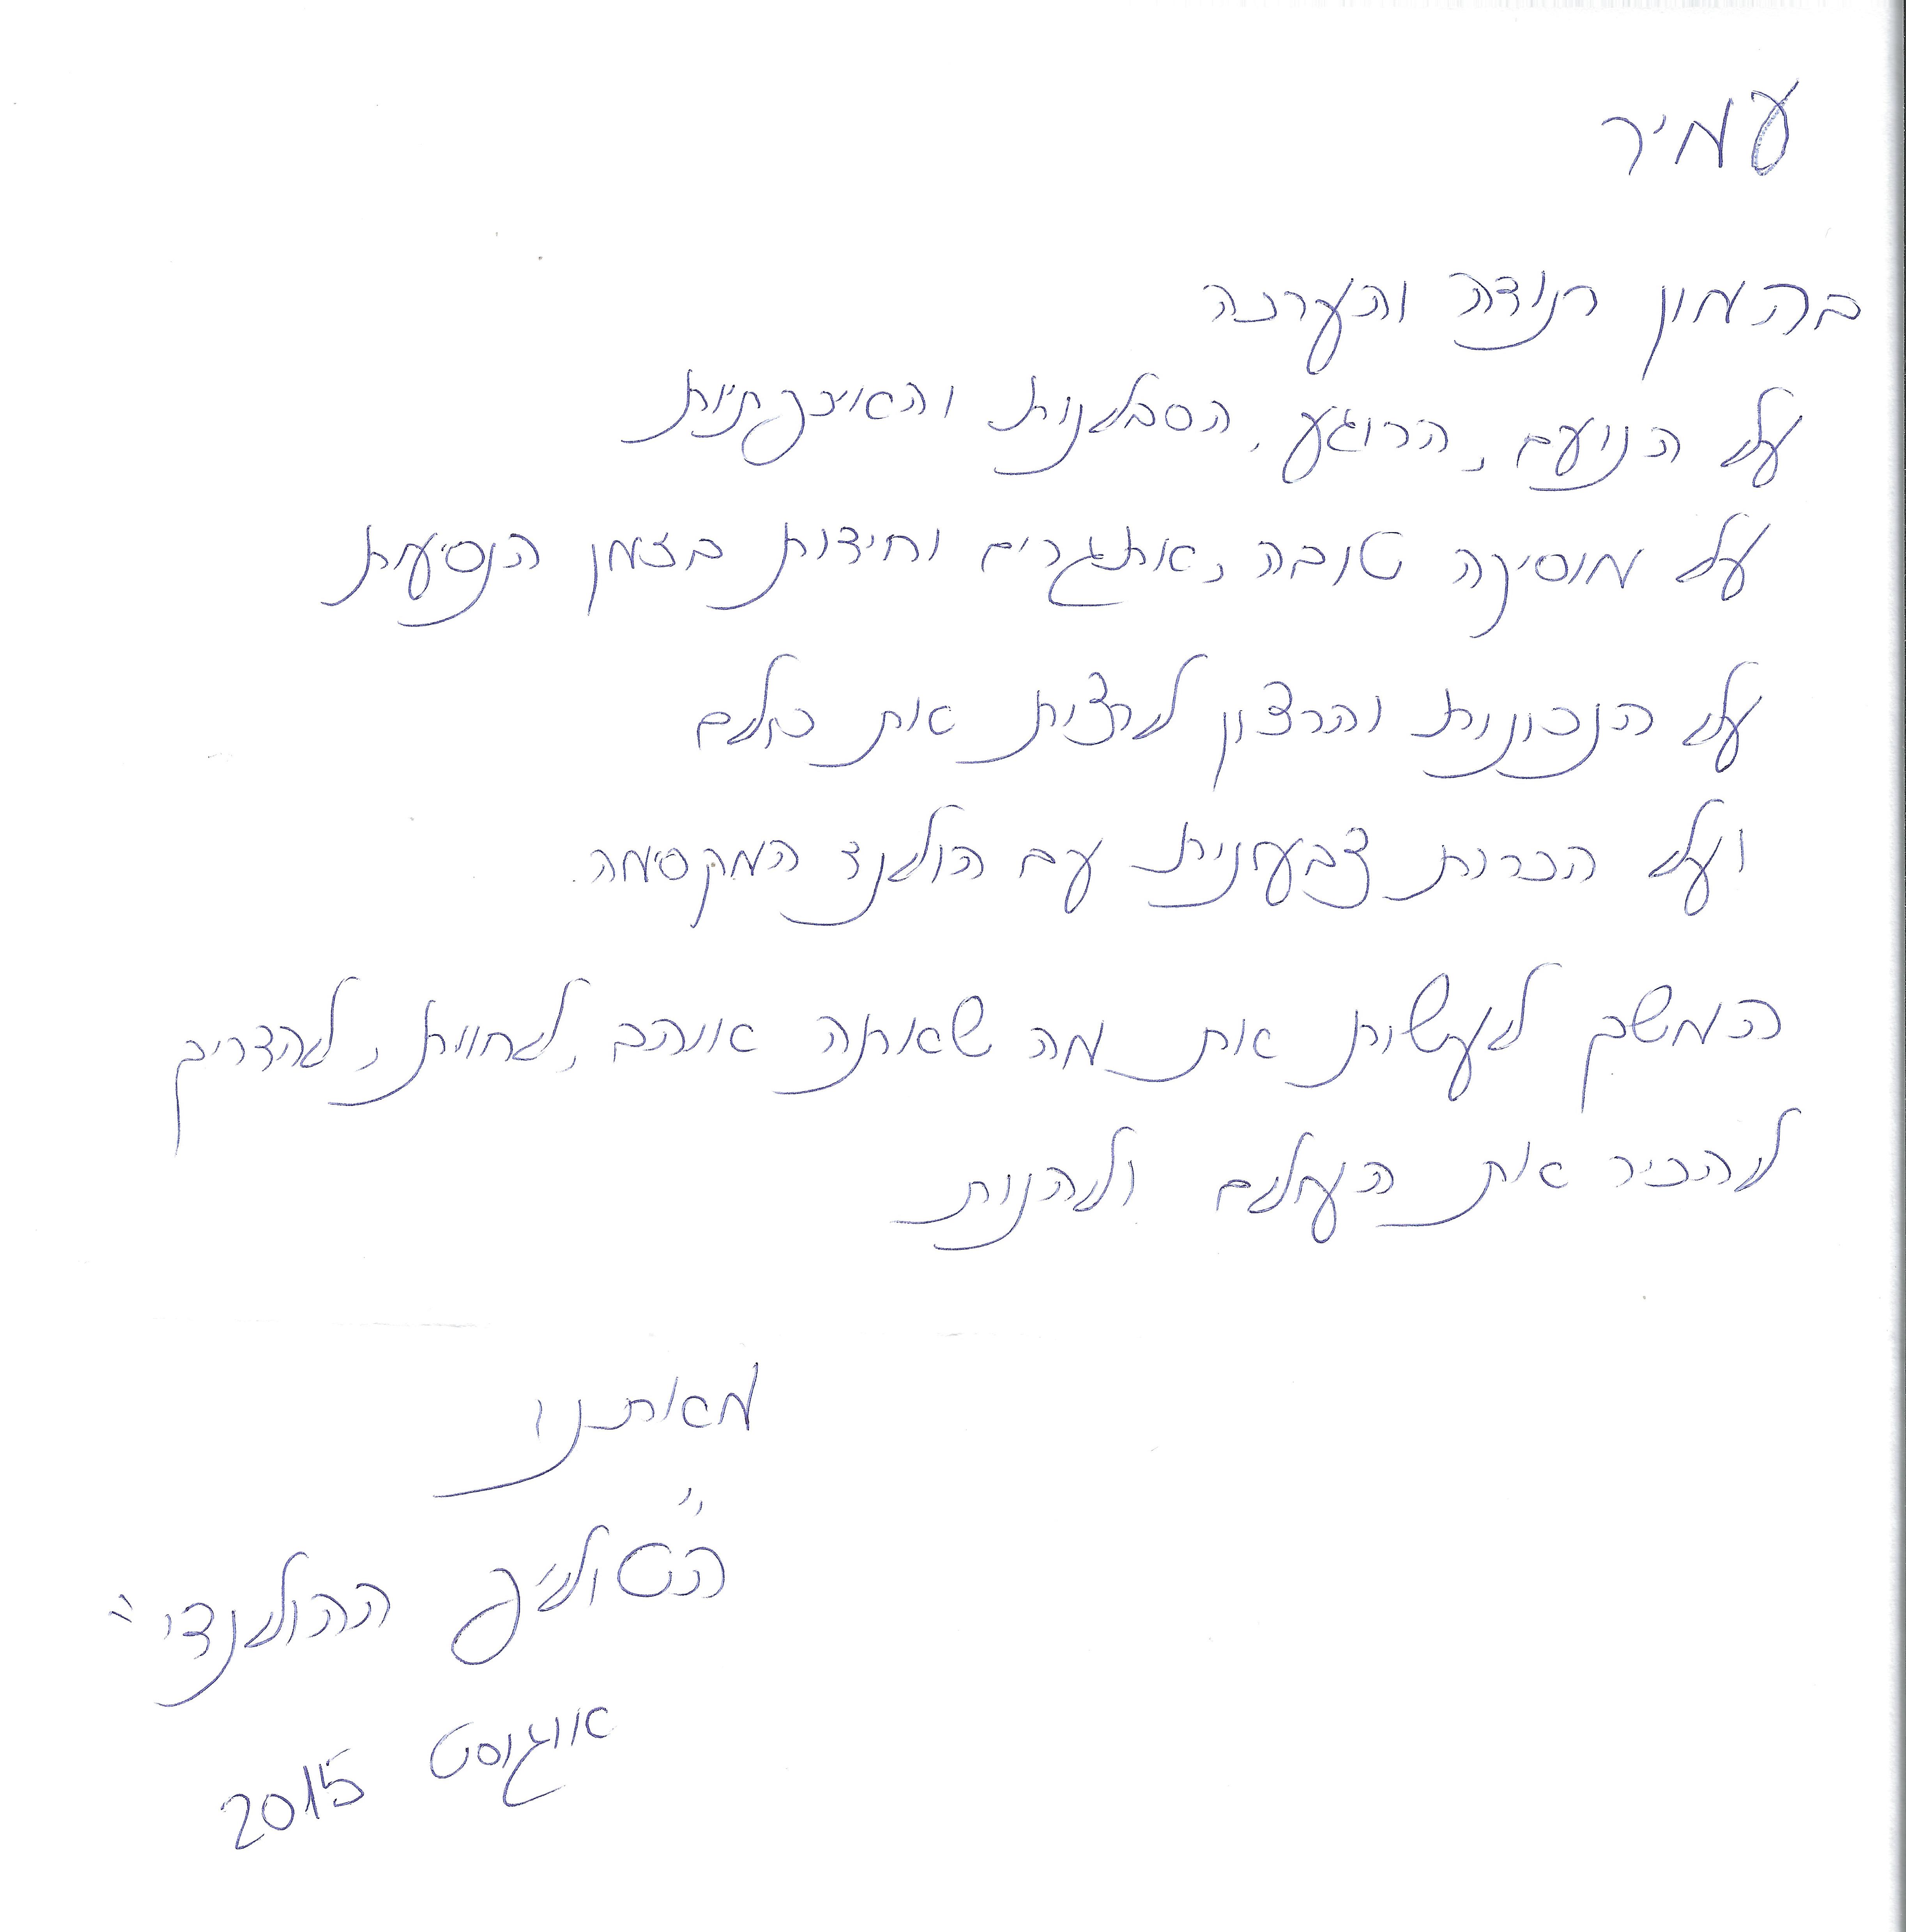 עמיר
בהמון תודה והערכה
על הנועם, הרוגע, הסבלנות והאיכפתיות
על מוסיקה טובה, אתגרים וחידות בזמן הנסיעות
על הנכונות והרצון לרצות את כולם
ועל הכרות צבעונית עם הולנד המקסימה.
המשך לעשות את מה שאתה אוהב, לחוות, להדריך
להכיר את העולם ולהנות
מאתנו
"הטוליפ ההולנדי"
אוגוסט 2015